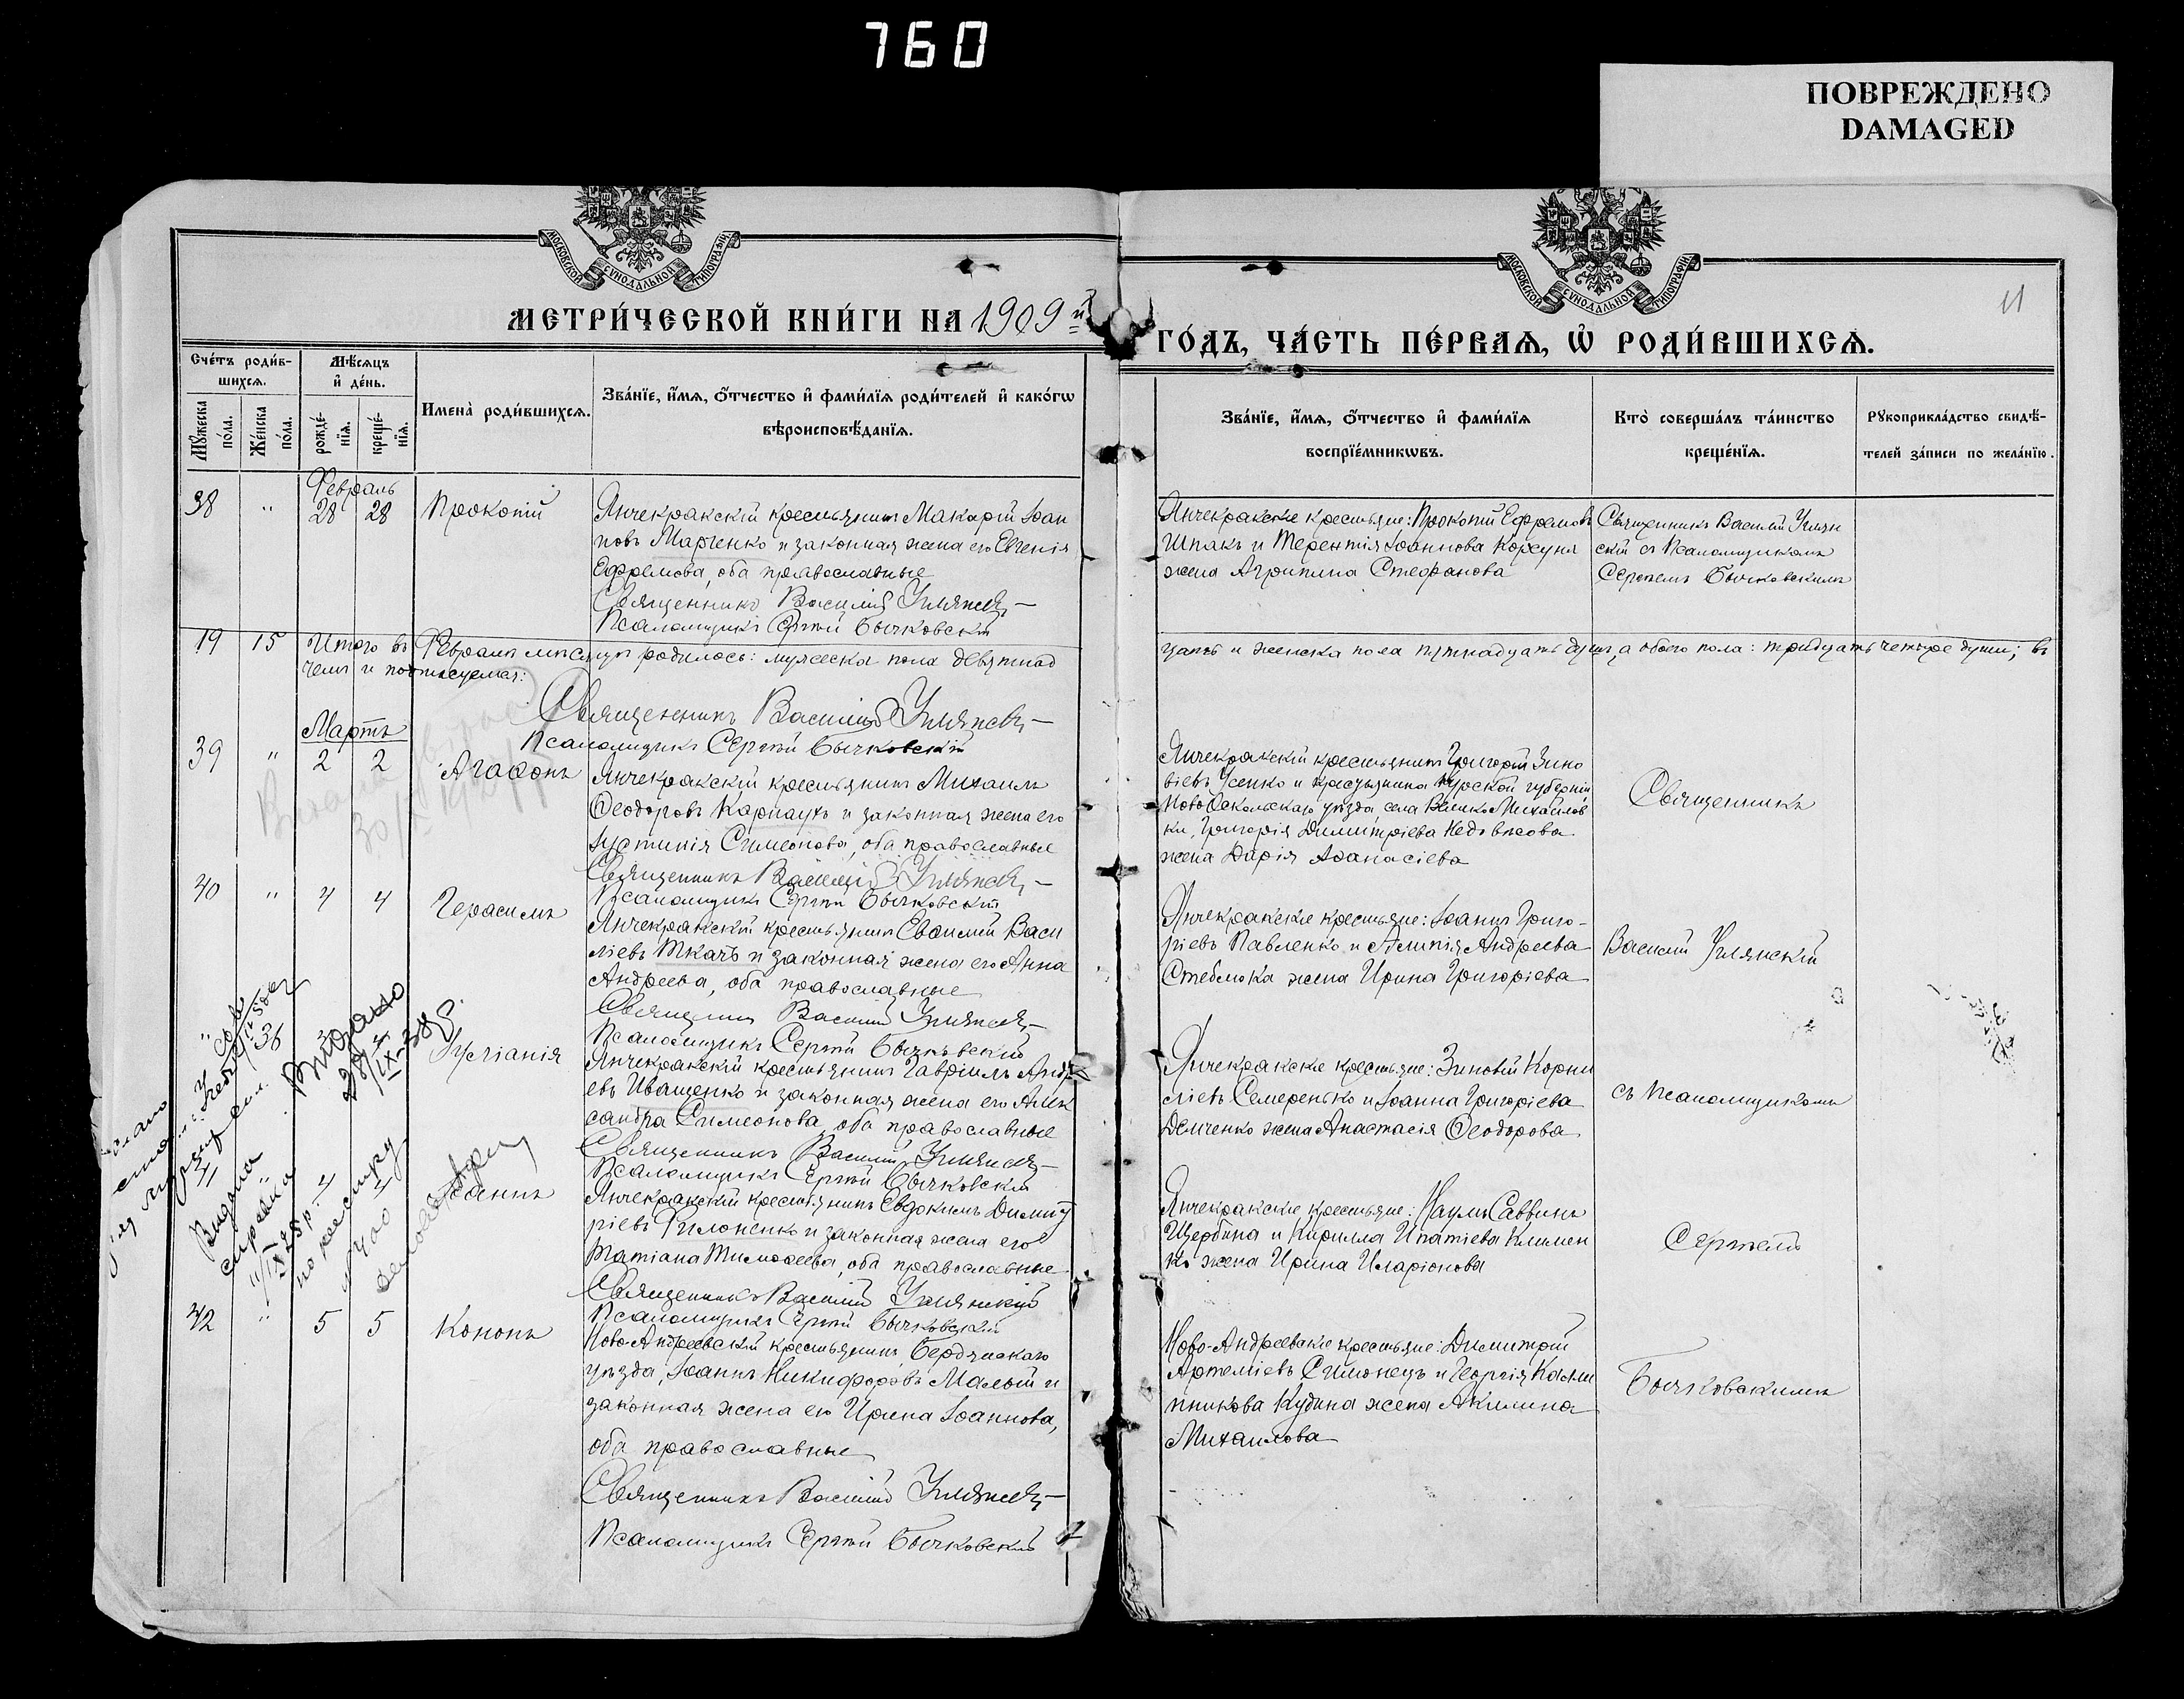 760
ПОВРЕЖДЕНО
DAMAGED
МОСКОВСКОЙ СѴНОДАЛЬНОЙ ТИПОГРАФІИ.
МОСКОВСКОЙ СѴНОДАЛЬНОЙ ТИПОГРАФІИ.
11
МЕТРИ́ЧЕСКОЙ КНИ́ГИ НА 1909 й
ГО́ДЪ, ЧА́СТЬ ПЕ́РВАѦ, Ѡ҆ РОДИ́ВШИХСѦ.
Сче́тъ роди́в-
шихсѧ.
Мѣ́сѧцъ
и҆ де́нь.
Мꙋ́жеска
по́ла.
Же́нска
по́ла.
рожде́-
нїѧ.
креще́-
нїѧ.
Имена̀ роди́вшихсѧ.
Зва́нїе, и҆́мѧ, ѻ҆́тчество и҆ фами́лїѧ роди́телей и҆ како́гѡ
вѣроисповѣ́данїѧ.
Зва́нїе, и҆́мѧ, ѻ҆́тчество и҆ фами́лїѧ
воспрїе́мникѡвъ.
Кто̀ соверша́лъ та́инство
креще́нїѧ.
Рꙋкоприкла́дство свидѣ́-
телей за́писи по жела́нїю.
Февраль
38 " 28 28 Прокопій
Янчекракскій крестьянинъ Макарій Іоан
новъ Марченко и законная жена его Евгенія
Ефремова, оба православные
Священникъ Василій Улянскій
Псаломщикъ Сергій Бычковскій
Янчекракскіе крестьяне: Прокопій Ефремовъ
Шпакъ и Терентія Іоаннова Корсуня
жена Агрипина Стефанова
Священникъ Василій Улян
скій съ Псаломщикомъ
Сергіемъ Бычковскимъ
19 15 Итого въ Февралѣ мѣсяцѣ родилось: мужеска пола девятнад
цать и женска пола пятнадцать душъ, а обоего пола: тридцать четыре души; въ
чемъ и подписуемся:
Священникъ Василій Улянскій
Псаломщикъ Сергій Бычковскій
Мартъ
39 " 2 2 Агафонъ
Янчекракскій крестьянинъ Михаилъ
Ѳеодоровъ Карнаухъ и законная жена его
Іустинія Симеонова, оба православные
Священникъ Василій Улянскій
Псаломщикъ Сергій Бычковскій
Янчекракскій крестьянинъ Григорій Зино
віевъ Усенко и крестьянина Курской губерніи
Ново Оскольскаго уѣзда, села Велико Михайлов
ки, Григорія Димитріева
жена Дарія Аѳанасіева
Священникъ
40 " 4 4 Герасимъ
Янчекракскій крестьянинъ Евѳимій Васи
ліевъ Ткачъ и законная жена его Анна
Андреева, оба православные
Священникъ Василій Улянскій
Псаломщикъ Сергій Бычковскій
Янчекракскіе крестьяне: Іоаннъ Григо-
ріевъ Павленко и Алипія Андреева
Стеблюка жена Ирина Григоріева
Василій Улянскій
Янчекракскій крестьянинъ Гавріилъ Андре
евъ Иващенко и законная жена его Алек
сандра Симеонова, оба православные
Священникъ Василій Улянскій
Псаломщикъ Сергій Бычковскій
Янчекракскіе крестьяне: Зиновій Корни
ліевъ Семеренько и Іоанна Григоріева
Демченко жена Анастасія Ѳеодорова
съ Псаломщикомъ
4 4 Іоаннъ
Янчекракскій крестьянинъ Евдокимъ Димит
ріевъ Филоненко и законная жена его
Татіана Тимоѳеева, оба православные
Священникъ Василій Улянскій
Псаломщикъ Сергій Бычковскій
Янчекракскіе крестьяне: Наумъ Саввинъ
Щербина и Кирилла Ипатіева Климен
ко жена Ирина Иларіонова
Сергіемъ
42 " 5 5 Кононъ
Ново-Андреевскій крестьянинъ, Бердянскаго
уѣзда, Іоаннъ Никифоровъ Малый и
законная жена его Ирина Іоаннова,
оба православные
Священникъ Василій Улянскій
Псаломщикъ Сергій Бычковскій
Ново-Андреевскіе крестьяне: Димитрій
Артеміевъ Симонецъ и Георгія
Кудина жена Акилина
Михаилова
Бычковскимъ